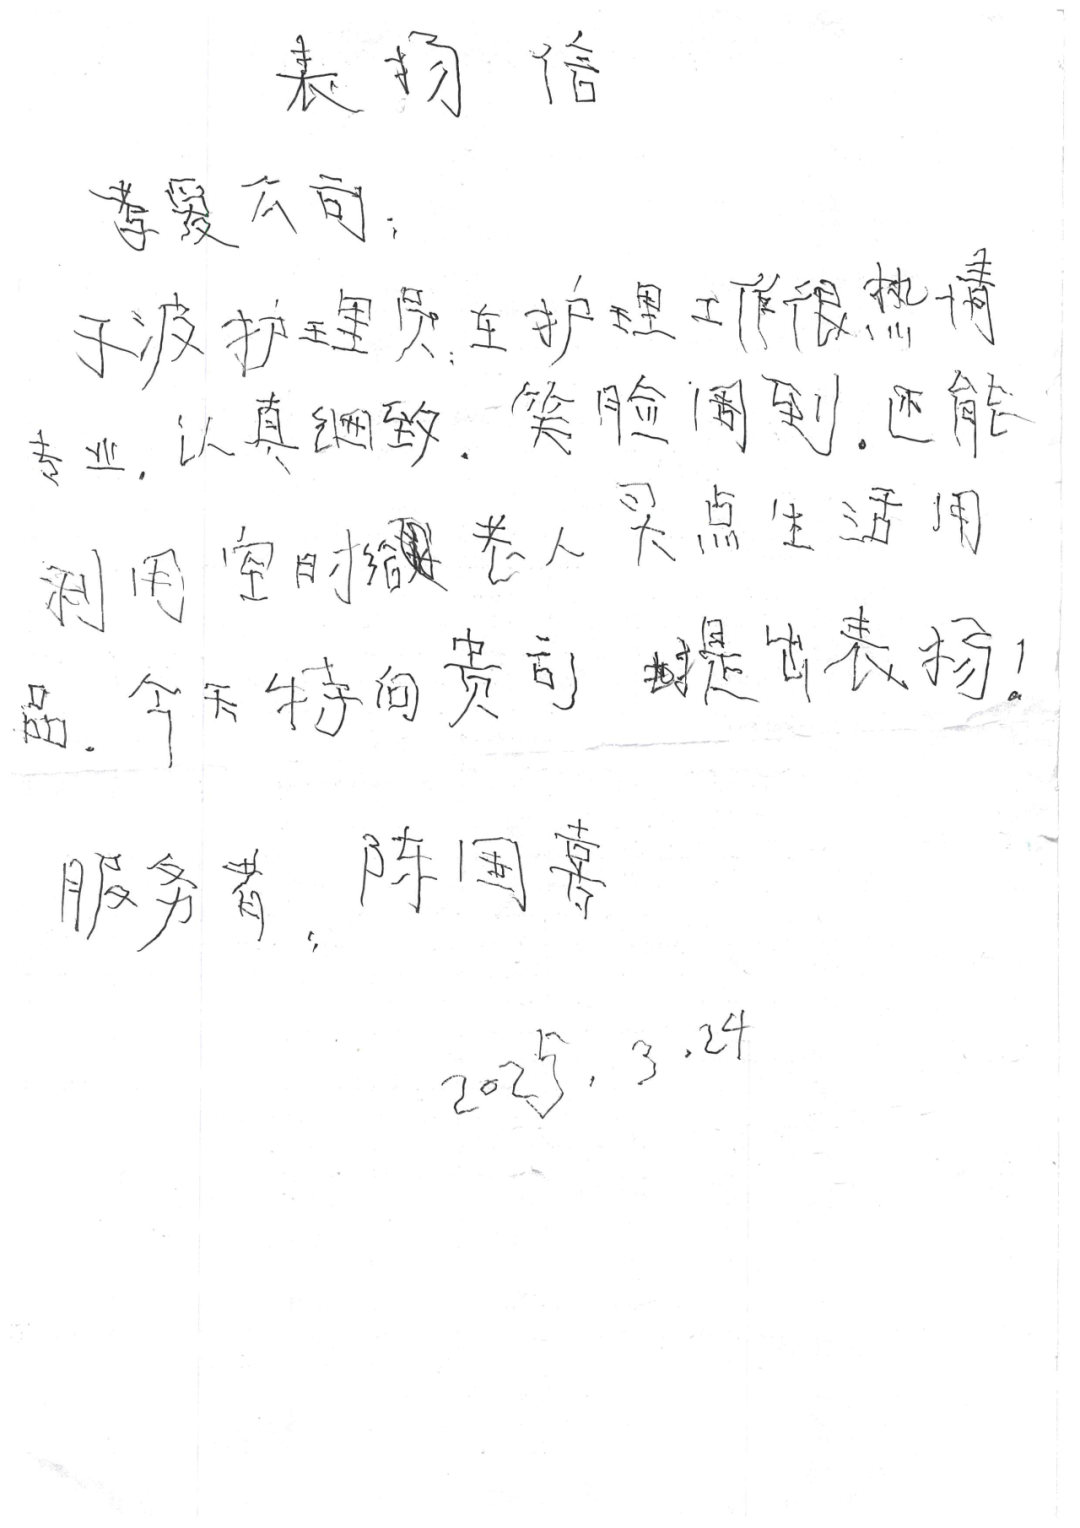 表扬信
孝爱公司：
于波护理员：在护理工作很热情
专业．认真细致．笑脸周到．还能
利用空时给老人买点生活用
品．今天特向贵司提出表扬！
服务者： 陈国喜
2025．3．24